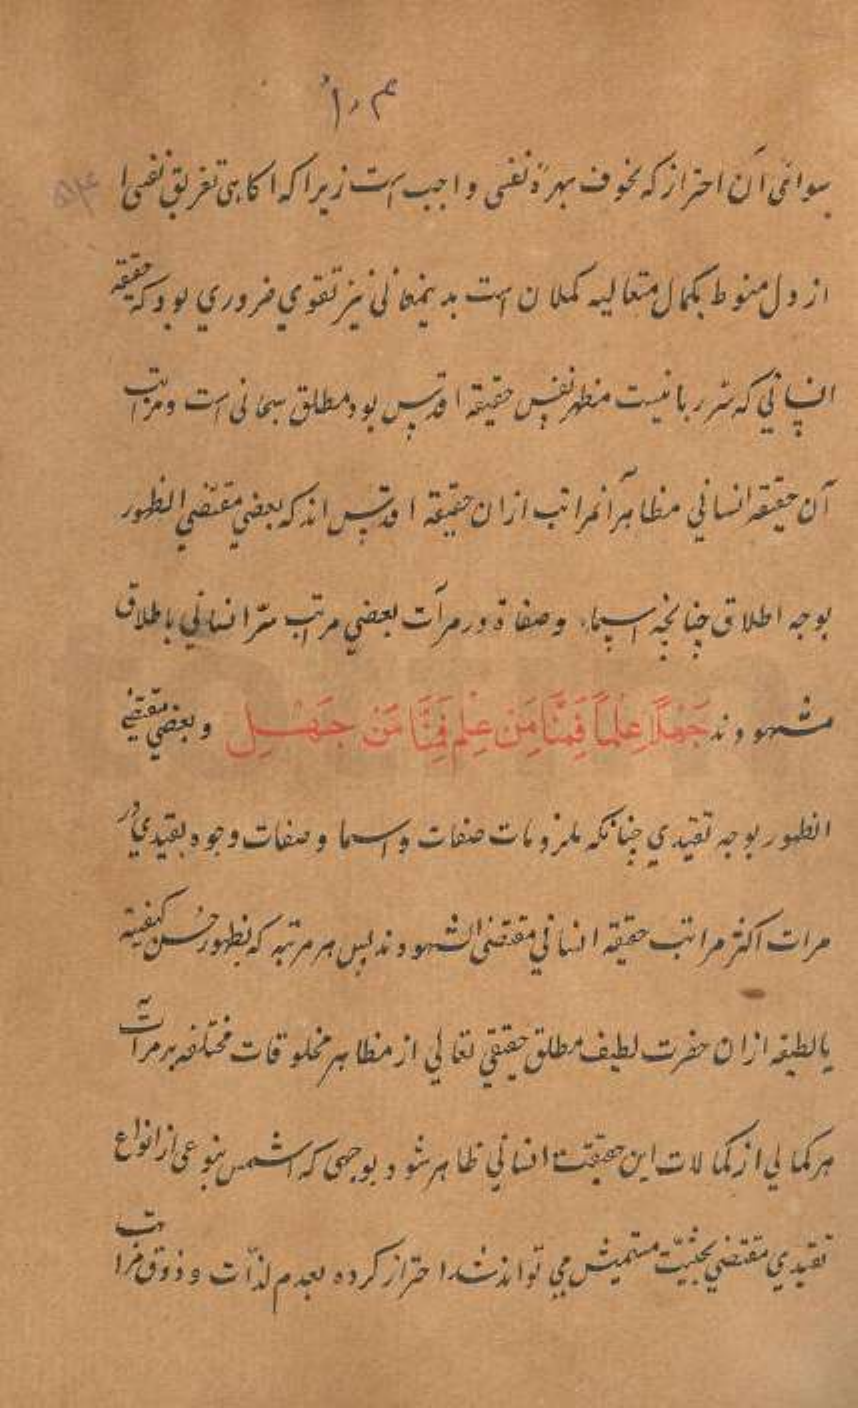 سوائی آن احتراز که بخوف بهرهٔ نفسی واجب است زیرا که اکاهی تفریق نفسی ا
از دل منوط بکمال متعالیه کملان است بدینمعانی نیز تقوي ضروري بود که حقیقه
انسانی که سر ربانیست مظهر نفس حقیقه اقدس بود مطلق سبحانی است ومراتب
آن حقیقه انسانی مظاهر آنمراتب ازان حقیقه اقدس اند که بعضي مقتضي الظهور
بوجه اطلاق چنانچه اسماء وصفاة در مرآت بعضي مراتب سرّ انساني باطلاق
مشهودند جَهْلًا عِلْماً فَمِنَّا مَن عِلْم فَمِنَّا مَنْ جَهْلِ وبعضي مقتضي
الظهور بوجه تقیدي چنانکه ملزومات صفات واسما وصفات وجود بقیدي در
مرات اکثر مراتب حقیقه انساني مقتضی الشهودند پس هر مرتبه که بظهور حسن کیفیته
یا لطیفه ازان حضرت لطیف مطلق حقیقي تعالي از مظاهر مخلوقات مختلفه بر مرآت
هر کمالي از کمالات این حقیقت انساني ظاهر شود بوجهی که اشمس بنوعی از انواع
تقیدي مقتضي بحثیت می تواند شد احتراز کرده بعدم لذات وذوق مراتب